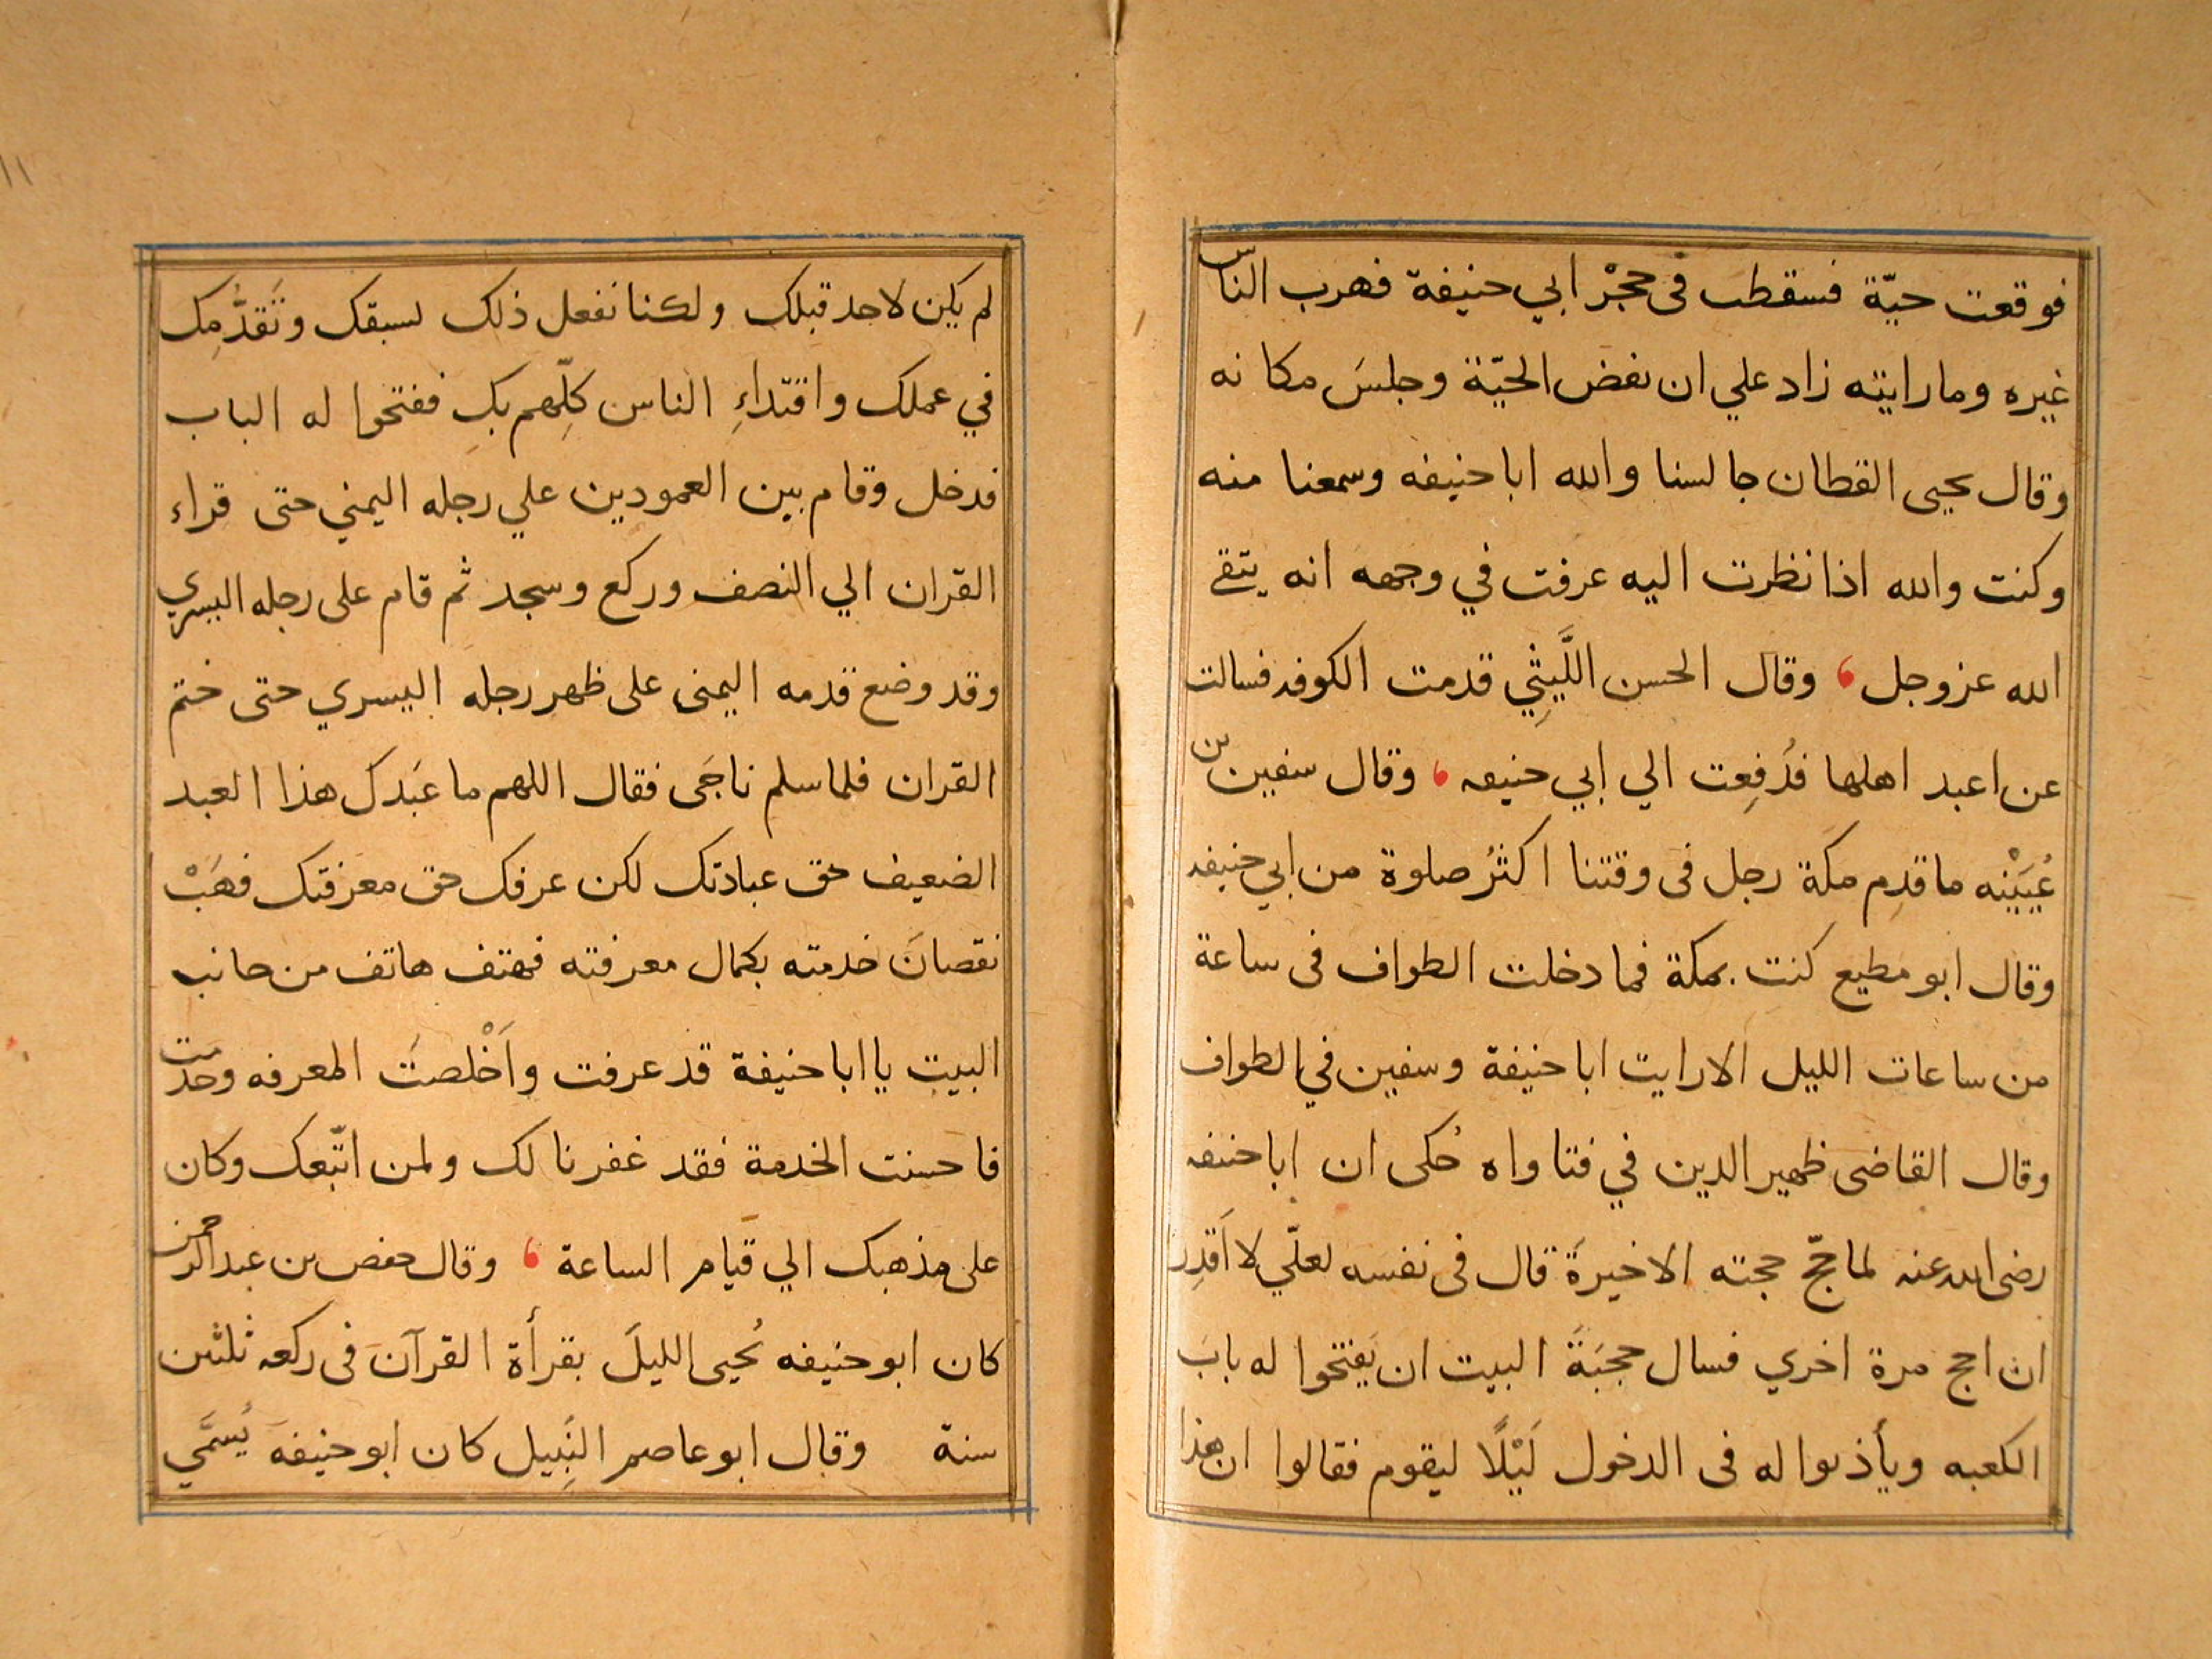 فوقعت حيّة فسقطت في حجْر ابي حنيفة فهرب الناس
غيره وما رايته زاد علي ان نفض الحيّة وجلسَ مكانه
وقال يحيى القطان جالسنا والله ابا حنيفه وسمعنا منه
وكنت والله اذا نظرت اليه عرفت في وجهه انه يتقي
الله عز وجل وقال الحسن اللَّيثِي قدمت الكوفه فسالت
عن اعبد اهلها فدُفِعت الي ابي حنيفه وقال سفين بن
عُيَيْنه ما قدِم مكة رجل في وقتنا اكثرُ صلوة من ابي حنيفه
وقال ابو مطيع كنت بمكة فما دخلت الطواف في ساعة
من ساعات الليل الا رايت ابا حنيفة وسفين في الطواف
وقال القاضى ظهير الدين في فتاواه حُكى ان ابا حنيفه
رضى الله عنه لما حجّ حجته الاخيرة قال في نفسه لعلّي لا اَقدِر
ان احج مرة اخري فسال حجبَةَ البيت ان يَفتحوا له بابَ
الكعبه ويأذنوا له فى الدخول لَيْلًا ليقوم فقالوا ان هذا
١١
لم يكن لاحد قبلك ولكنا نفعل ذلك لسبقك وتَقدُّمِك
في عملك واقتداءِ الناس كلِّهم بك ففتحوا له الباب
فدخل وقام بين العمودين علي رجله اليمني حتى قراء
القران الي النصف وركع وسجد ثم قام على رجله اليسري
وقد وضع قدمه اليمنى على ظهر رجله اليسري حتى ختم
القران فلما سلم ناجَى فقال اللهم ما عَبَدك هذا العبد
الضعيف حق عبادتك لكن عرفك حق معرفتك فهَبْ
نقصانَ خدمته بكمال معرفته فهتف هاتف من جانب
البيت يا ابا حنيفة قد عرفت واَخْلصتَ المعرفه وخدمت
فاحسنت الخدمة فقد غفرنا لك ولمن اتّبعك وكان
على مذهبك الي قيام الساعة وقال حفص بن عبد الرحمن
كان ابو حنيفه يُحيى الليلَ بقرأة القرآن فى ركعه ثلثين
سنة وقال ابو عاصم النَبِيل كان ابو حنيفه يُسمَّي